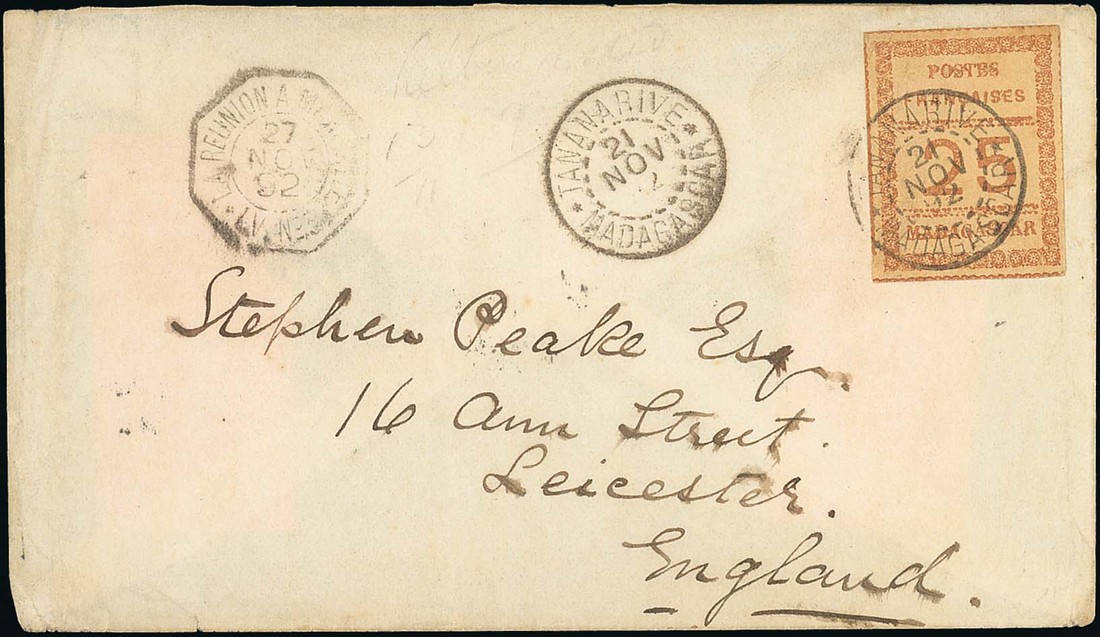 LA REUNION A MARSEILLE
27
NOV
92
L.V. Nº
TANANARIVE
21
NOV
2
MADAGASCAR
POSTES
FRANÇAISES
25
MADAGASCAR
TANANARIVE
21
NOV
92
MADAGASCAR
Stephen Peake Esq.
16 Ann Street.
Leicester.
England.